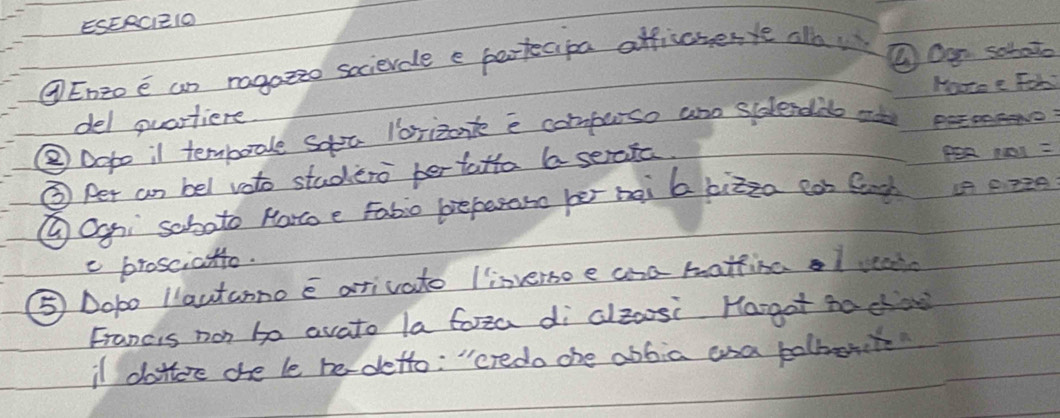 ESERCIZIO
① Enzo é un ragazzo socievole e partecipa attivamente alla
del quartiere.
② Dopo il temporale sopra l'orizzonte è comparso uno splendido
③ Per un bel voto studierò per tutta la serata.
④ Ogni sabato Marco e Fabio preparano per noi la pizza con funghi
e prosciutto.
⑤ Dopo l'autunno è arrivato l'inverno e una mattina il
Francis non ha avuto la forza di alzarsi. Margot ha
il dottore che le ha detto: "credo che abbia una
④ Ogni sabato
Marco e Fabio
PREPARANO
PER NOI =
LA PIZZA